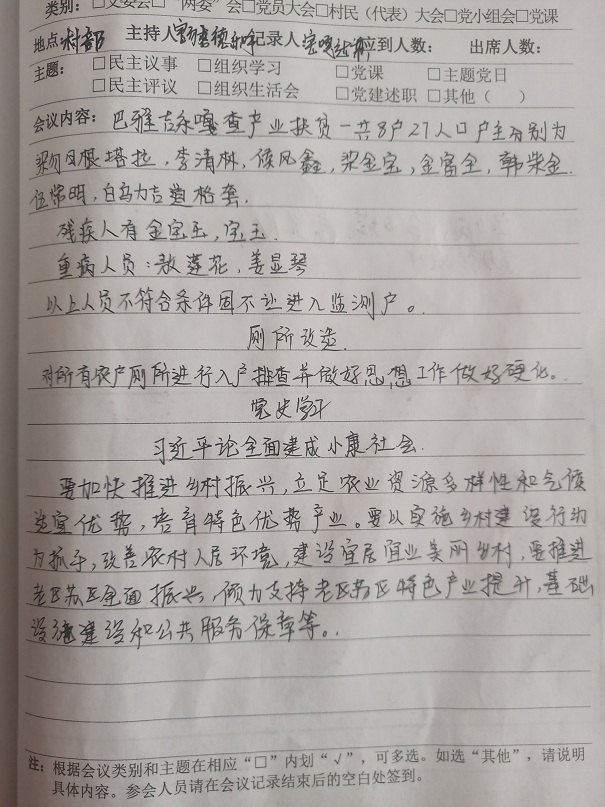 类别：□支委会□“两委”会□党员大会□村民（代表）大会□党小组会□党课
地点：村部 主持人： 记录人： 应到人数： 出席人数：
主题： □民主议事 □组织学习 □党课 □主题党日
□民主评议 □组织生活会 □党建述职 □其他（ ）
会议内容：巴雅吉 嘎查产业扶贫一共8户27人口户主分别为
梁 日根塔拉，李清林，侯风鑫，梁金宝，金富全，韩柴金.
伍常明，白乌力吉 格套.
残疾人有金宝玉，宝玉.
重病人员：敖莲花，姜显琴
以上人员不符合条件因不让进入监测户。
厕所改造.
对所有农户厕所进行入户排查并做好思想工作做好硬化。
党史学习
习近平论全面建成小康社会.
要加快推进乡村振兴，立足农业资源多样性和气候
适宜优势，培育特色优势产业。要以实施乡村建设行动
为抓手，改善农村人居环境，建设宜居宜业美丽乡村，要推进
老区苏区全面振兴，倾力支持老区苏区特色产业提升，基础
设施建设和公共服务保障等。
注：根据会议类别和主题在相应“□”内划“√”，可多选。如选“其他”，请说明
具体内容。参会人员请在会议记录结束后的空白处签到。